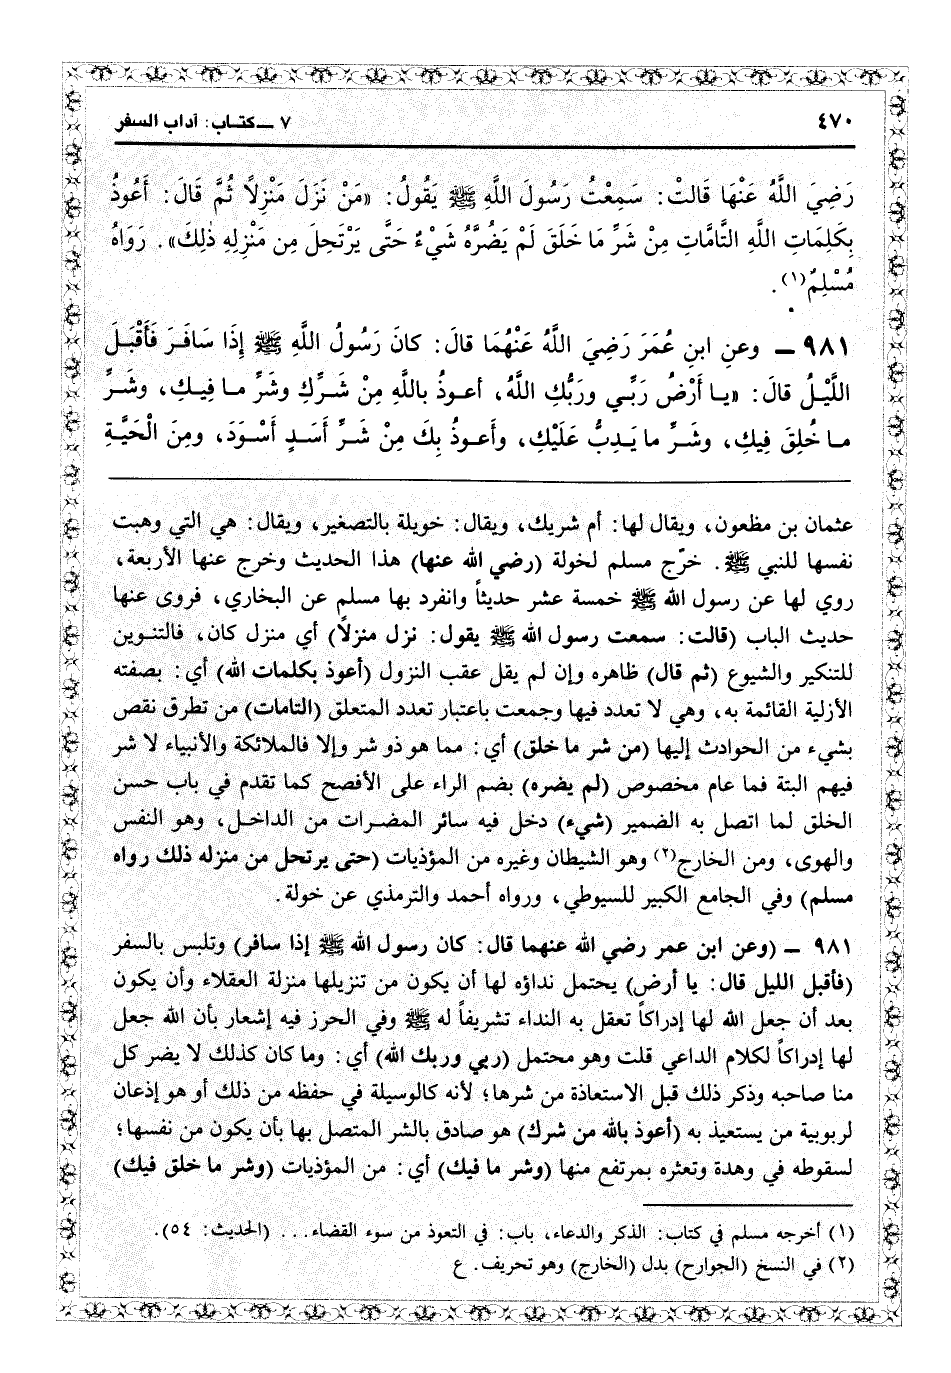 ٤٧٠
٧ ــ كتـاب: آداب السفر
رَضِيَ اللَّهُ عَنْهَا قَالتْ: سَمِعْتُ رَسُولَ اللَّهِ ﷺ يَقُولُ: «مَنْ نَزَلَ مَنْزِلاً ثُمَّ قَالَ: أَعُوذُ
بِكَلِمَاتِ اللَّهِ التَّامَّاتِ مِنْ شَرِّ مَا خَلَقَ لَمْ يَضُرَّهُ شَيْءٌ حَتَّى يَرْتَحِلَ مِن مَنْزِلِهِ ذٰلِكَ». رَوَاهُ
مُسْلِمٌ(١).
٩٨١ ــ وعنِ ابنِ عُمَرَ رَضِيَ اللَّهُ عَنْهُمَا قالَ: كانَ رَسُولُ اللَّهِ ﷺ إِذَا سَافَرَ فَأَقْبَلَ
اللَّيْلُ قالَ: «يـا أَرْضُ رَبِّـي ورَبُّكِ اللَّهُ، أعـوذُ باللَّهِ مِنْ شَـرِّكِ وشَرِّ مـا فِيـكِ، وشَـرِّ
مـا خُلِقَ فِيكِ، وشَـرِّ ما يَـدِبُّ عَلَيْكِ، وأَعـوذُ بِكَ مِنْ شَرِّ أَسَـدٍ أَسْـوَدَ، ومِنَ الْحَيَّةِ
عثمان بن مظعون، ويقال لها: أم شريك، ويقال: خويلة بالتصغير، ويقال: هي التي وهبت
نفسها للنبي ﷺ. خرّج مسلم لخولة (رضي الله عنها) هذا الحديث وخرج عنها الأربعة،
روي لها عن رسول الله ﷺ خمسة عشر حديثاً وانفرد بها مسلم عن البخاري، فروى عنها
حديث الباب (قالت: سمعت رسول الله ﷺ يقول: نزل منزلاً) أي منزل كان، فالتنوين
للتنكير والشيوع (ثم قال) ظاهره وإن لم يقل عقب النزول (أعوذ بكلمات الله) أي: بصفته
الأزلية القائمة به، وهي لا تعدد فيها وجمعت باعتبار تعدد المتعلق (التامات) من تطرق نقص
بشيء من الحوادث إليها (من شر ما خلق) أي: مما هو ذو شر وإلا فالملائكة والأنبياء لا شر
فيهم البتة فما عام مخصوص (لم يضره) بضم الراء على الأفصح كما تقدم في باب حسن
الخلق لما اتصل به الضمير (شيء) دخل فيه سائر المضرات من الداخل، وهو النفس
والهوى، ومن الخارج(٢) وهو الشيطان وغيره من المؤذيات (حتى يرتحل من منزله ذلك رواه
مسلم) وفي الجامع الكبير للسيوطي، ورواه أحمد والترمذي عن خولة.
٩٨١ ــ (وعن ابن عمر رضي الله عنهما قال: كان رسول الله ﷺ إذا سافر) وتلبس بالسفر
(فأقبل الليل قال: يا أرض) يحتمل نداؤه لها أن يكون من تنزيلها منزلة العقلاء وأن يكون
بعد أن جعل الله لها إدراكاً تعقل به النداء تشريفاً له ﷺ وفي الحرز فيه إشعار بأن الله جعل
لها إدراكاً لكلام الداعي قلت وهو محتمل (ربي وربك الله) أي: وما كان كذلك لا يضر كل
منا صاحبه وذكر ذلك قبل الاستعاذة من شرها؛ لأنه كالوسيلة في حفظه من ذلك أو هو إذعان
لربوبية من يستعيذ به (أعوذ بالله من شرك) هو صادق بالشر المتصل بها بأن يكون من نفسها؛
لسقوطه في وهدة وتعثره بمرتفع منها (وشر ما فيك) أي: من المؤذيات (وشر ما خلق فيك)
(١) أخرجه مسلم في كتاب: الذكر والدعاء، باب: في التعوذ من سوء القضاء... (الحديث: ٥٤).
(٢) في النسخ (الجوارح) بدل (الخارج) وهو تحريف. ع